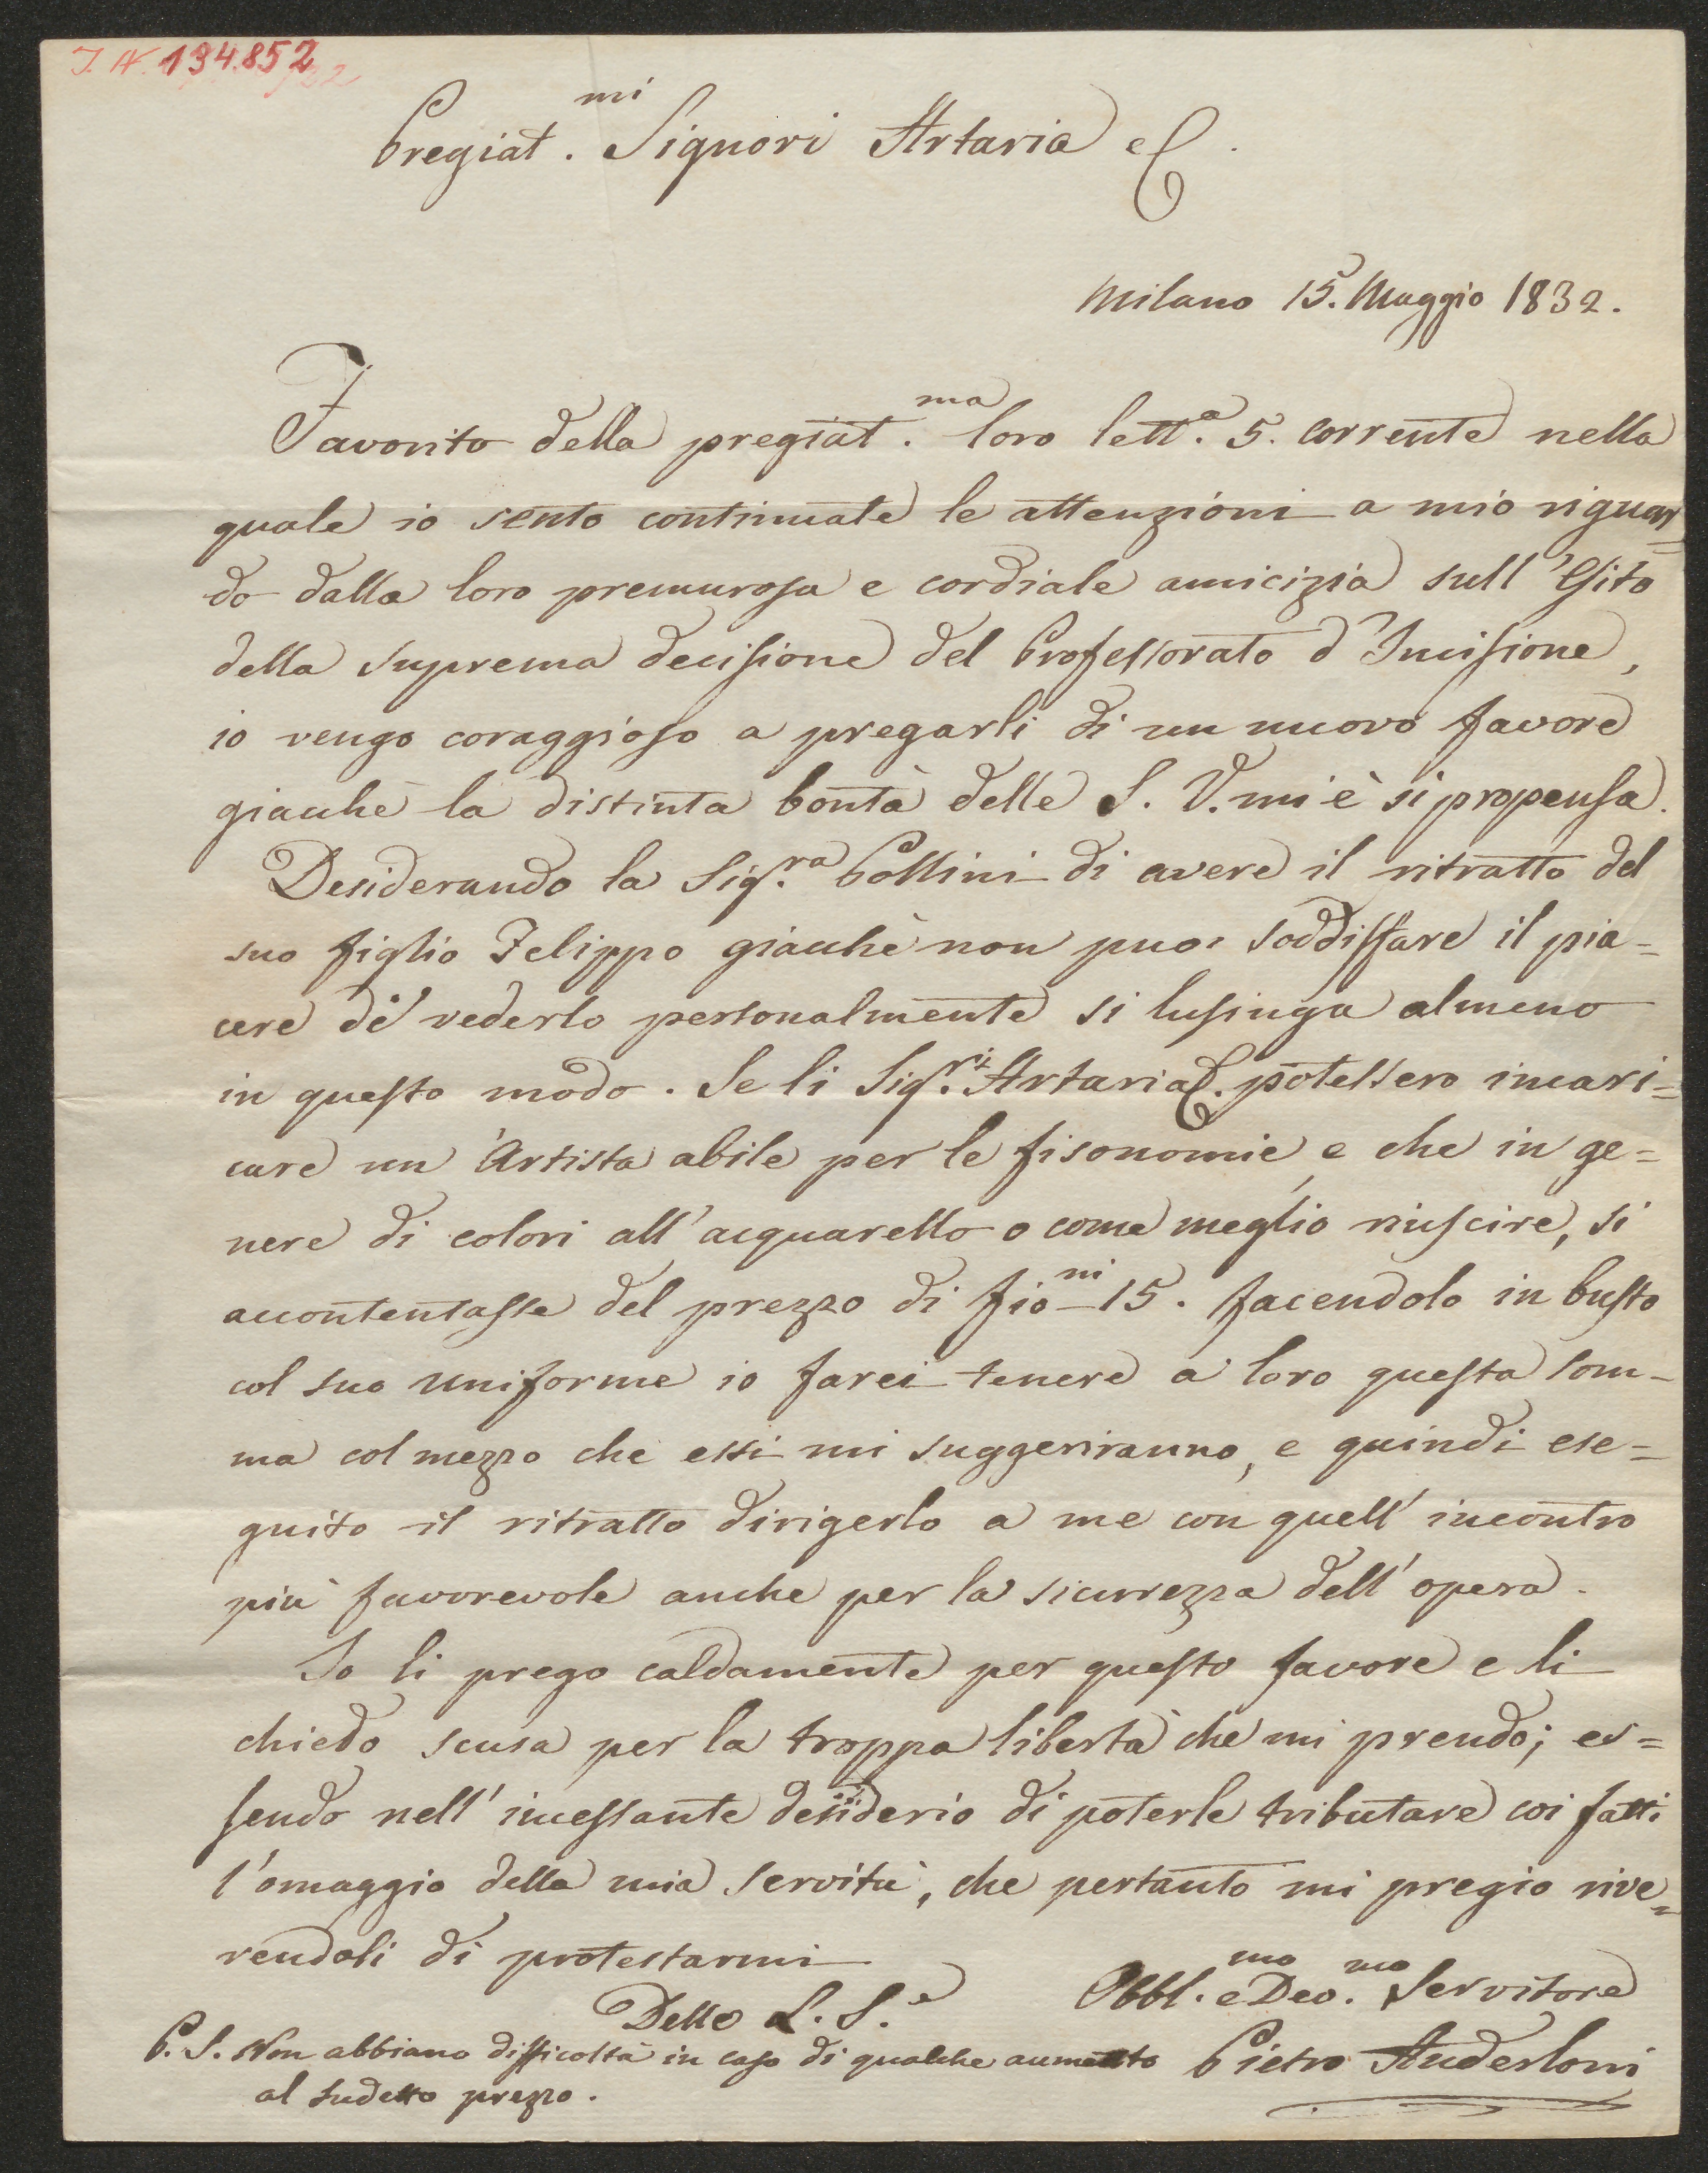 I. N. 194.852
Pregiat.mi Signori Artaria e C.
Milano 15. Maggio 1832.
Favorito della pregiat.ma loro lett.a 5. corrente nella
quale io sento continuate le attenzioni a mio riguar=
do dalla loro premurosa e cordiale amicizia sull'Esito
della suprema decisione del Professorato d'Incisione,
io vengo coraggioso a pregarli di un nuovo favore
giacchè la distinta bontà delle S. V. mi è si propensa.
Desiderando la Sig.ra Pollini di avere il ritratto del
suo figlio Felippo giacchè non puo' soddisfare il pia=
cere di vederlo personalmente si lusinga almeno
in questo modo. Se li Sig.ri Artaria C. potessero incari=
care un'Artista abile per le fisonomie, e che in ge=
nere di colori all'acquarello o come meglio riuscire, si
accontentasse del prezzo di fio.ni 15. facendolo in busto
col suo uniforme io farei tenere a loro questa som=
ma col mezzo che essi mi suggeriranno, e quindi ese=
guito il ritratto dirigerlo a me con quell'incontro
più favorevole anche per la sicurezza dell'opera.
Io li prego caldamente per questo favore e li
chiedo scusa per la troppa libertà che mi prendo; es=
sendo nell'incessante desiderio di poterle tributare coi fatti
l'omaggio della mia servitù, che pertanto mi pregio rive=
rendoli di protestarmi
Delle L. S.e
Obbl.mo e Deo.mo Servitore
P. S. Non abbiano difficoltà in caso di qualche aumento
al sudetto prezzo.
Pietro Anderloni